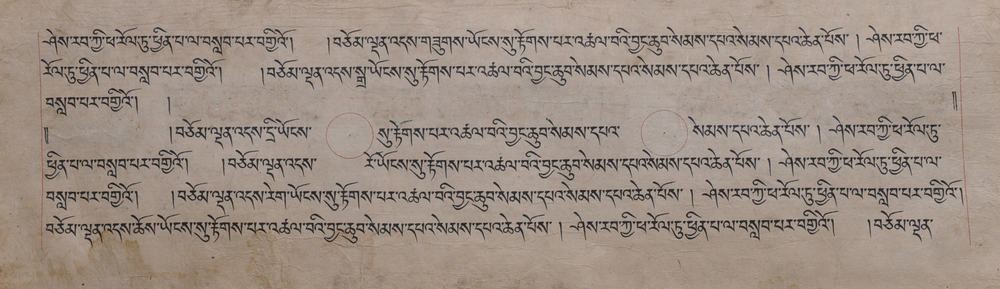 ཤེས་རབ་ཀྱི་ཕ་རོལ་ཏུ་ཕྱིན་པ་ལ་བསླབ་པར་བགྱིའོ། །བཅོམ་ལྡན་འདས་གཟུགས་ཡོངས་སུ་རྟོགས་པར་འཚལ་བའི་བྱང་ཆུབ་སེམས་དཔའ་སེམས་དཔའ་ཆེན་པོས། །ཤེས་རབ་ཀྱི་ཕ་
རོལ་ཏུ་ཕྱིན་པ་ལ་བསླབ་པར་བགྱིའོ། །བཅོམ་ལྡན་འདས་སྒྲ་ཡོངས་སུ་རྟོགས་པར་འཚལ་བའི་བྱང་ཆུབ་སེམས་དཔའ་སེམས་དཔའ་ཆེན་པོས། །ཤེས་རབ་ཀྱི་ཕ་རོལ་ཏུ་ཕྱིན་པ་ལ་
བསླབ་པར་བགྱིའོ། ། ༎
༎ །བཅོམ་ལྡན་འདས་དྲི་ཡོངས་ སུ་རྟོགས་པར་འཚལ་བའི་བྱང་ཆུབ་སེམས་དཔའ་ སེམས་དཔའ་ཆེན་པོས། །ཤེས་རབ་ཀྱི་ཕ་རོལ་ཏུ་
ཕྱིན་པ་ལ་བསླབ་པར་བགྱིའོ། །བཅོམ་ལྡན་འདས་ རོ་ཡོངས་སུ་རྟོགས་པར་འཚལ་བའི་བྱང་ཆུབ་སེམས་དཔའ་སེམས་དཔའ་ཆེན་པོས། །ཤེས་རབ་ཀྱི་ཕ་རོལ་ཏུ་ཕྱིན་པ་ལ་
བསླབ་པར་བགྱིའོ། །བཅོམ་ལྡན་འདས་རེག་ཡོངས་སུ་རྟོགས་པར་འཚལ་བའི་བྱང་ཆུབ་སེམས་དཔའ་སེམས་དཔའ་ཆེན་པོས། །ཤེས་རབ་ཀྱི་ཕ་རོལ་ཏུ་ཕྱིན་པ་ལ་བསླབ་པར་བགྱིའོ།
བཅོམ་ལྡན་འདས་ཆོས་ཡོངས་སུ་རྟོགས་པར་འཚལ་བའི་བྱང་ཆུབ་སེམས་དཔའ་སེམས་དཔའ་ཆེན་པོས། །ཤེས་རབ་ཀྱི་ཕ་རོལ་ཏུ་ཕྱིན་པ་ལ་བསླབ་པར་བགྱིའོ། །བཅོམ་ལྡན་